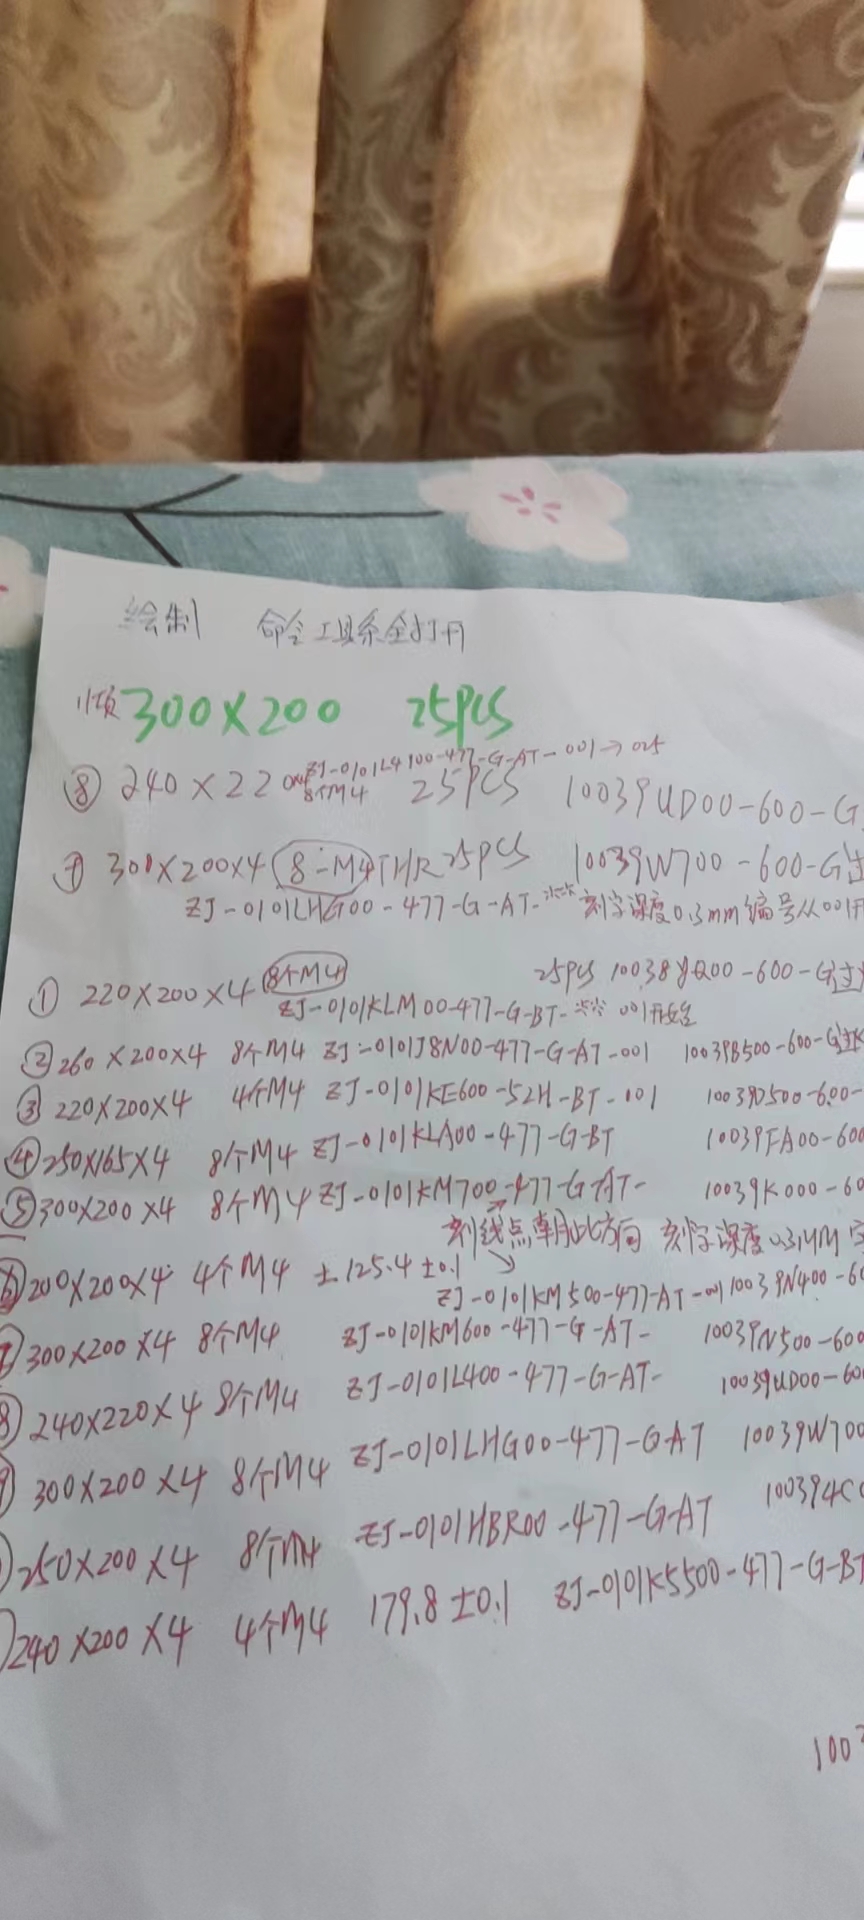 绘制 命令工具条全打开
11项 300×200 25PCS
ZJ-0101L4100-477-G-AT-001→025
⑧ 240×220×4 8个M4 25PCS 10039UD00-600-G
⑦ 300×200×4 8-M4THR 25PCS 10039W700-600-G
ZJ-0101LHG00-477-G-AT-** 刻字深度0.3mm编号从001开
① 220×200×4 8个M4 25PCS 10038YQ00-600-G过
ZJ-0101KLM00-477-G-BT-** 001开始
② 260×200×4 8个M4 ZJ-0101J8N00-477-G-AT-001 10039B500-600-G
③ 220×200×4 4个M4 ZJ-0101KE600-52H-BT-101 10039D500-600-
④ 250×165×4 8个M4 ZJ-0101KLA00-477-G-BT 10039FA00-600
⑤ 300×200×4 8个M4 ZJ-0101KM700-477-G-AT- 10039K000-60
刻线点朝此方向 刻字深度0.3MM
⑥ 200×200×4 4个M4 ±125.4±0.1
ZJ-0101KM500-477-AT-001 10039N400-60
300×200×4 8个M4 ZJ-0101KM600-477-G-AT- 10039N500-600
⑧ 240×220×4 8个M4 ZJ-0101L400-477-G-AT- 10039UD00-60
300×200×4 8个M4 ZJ-0101LHG00-477-G-AT 10039W700
250×200×4 8个M4 ZJ-0101HBR00-477-G-AT 100394C
240×200×4 4个M4 179.8±0.1 ZJ-0101K5500-477-G-BT
1003